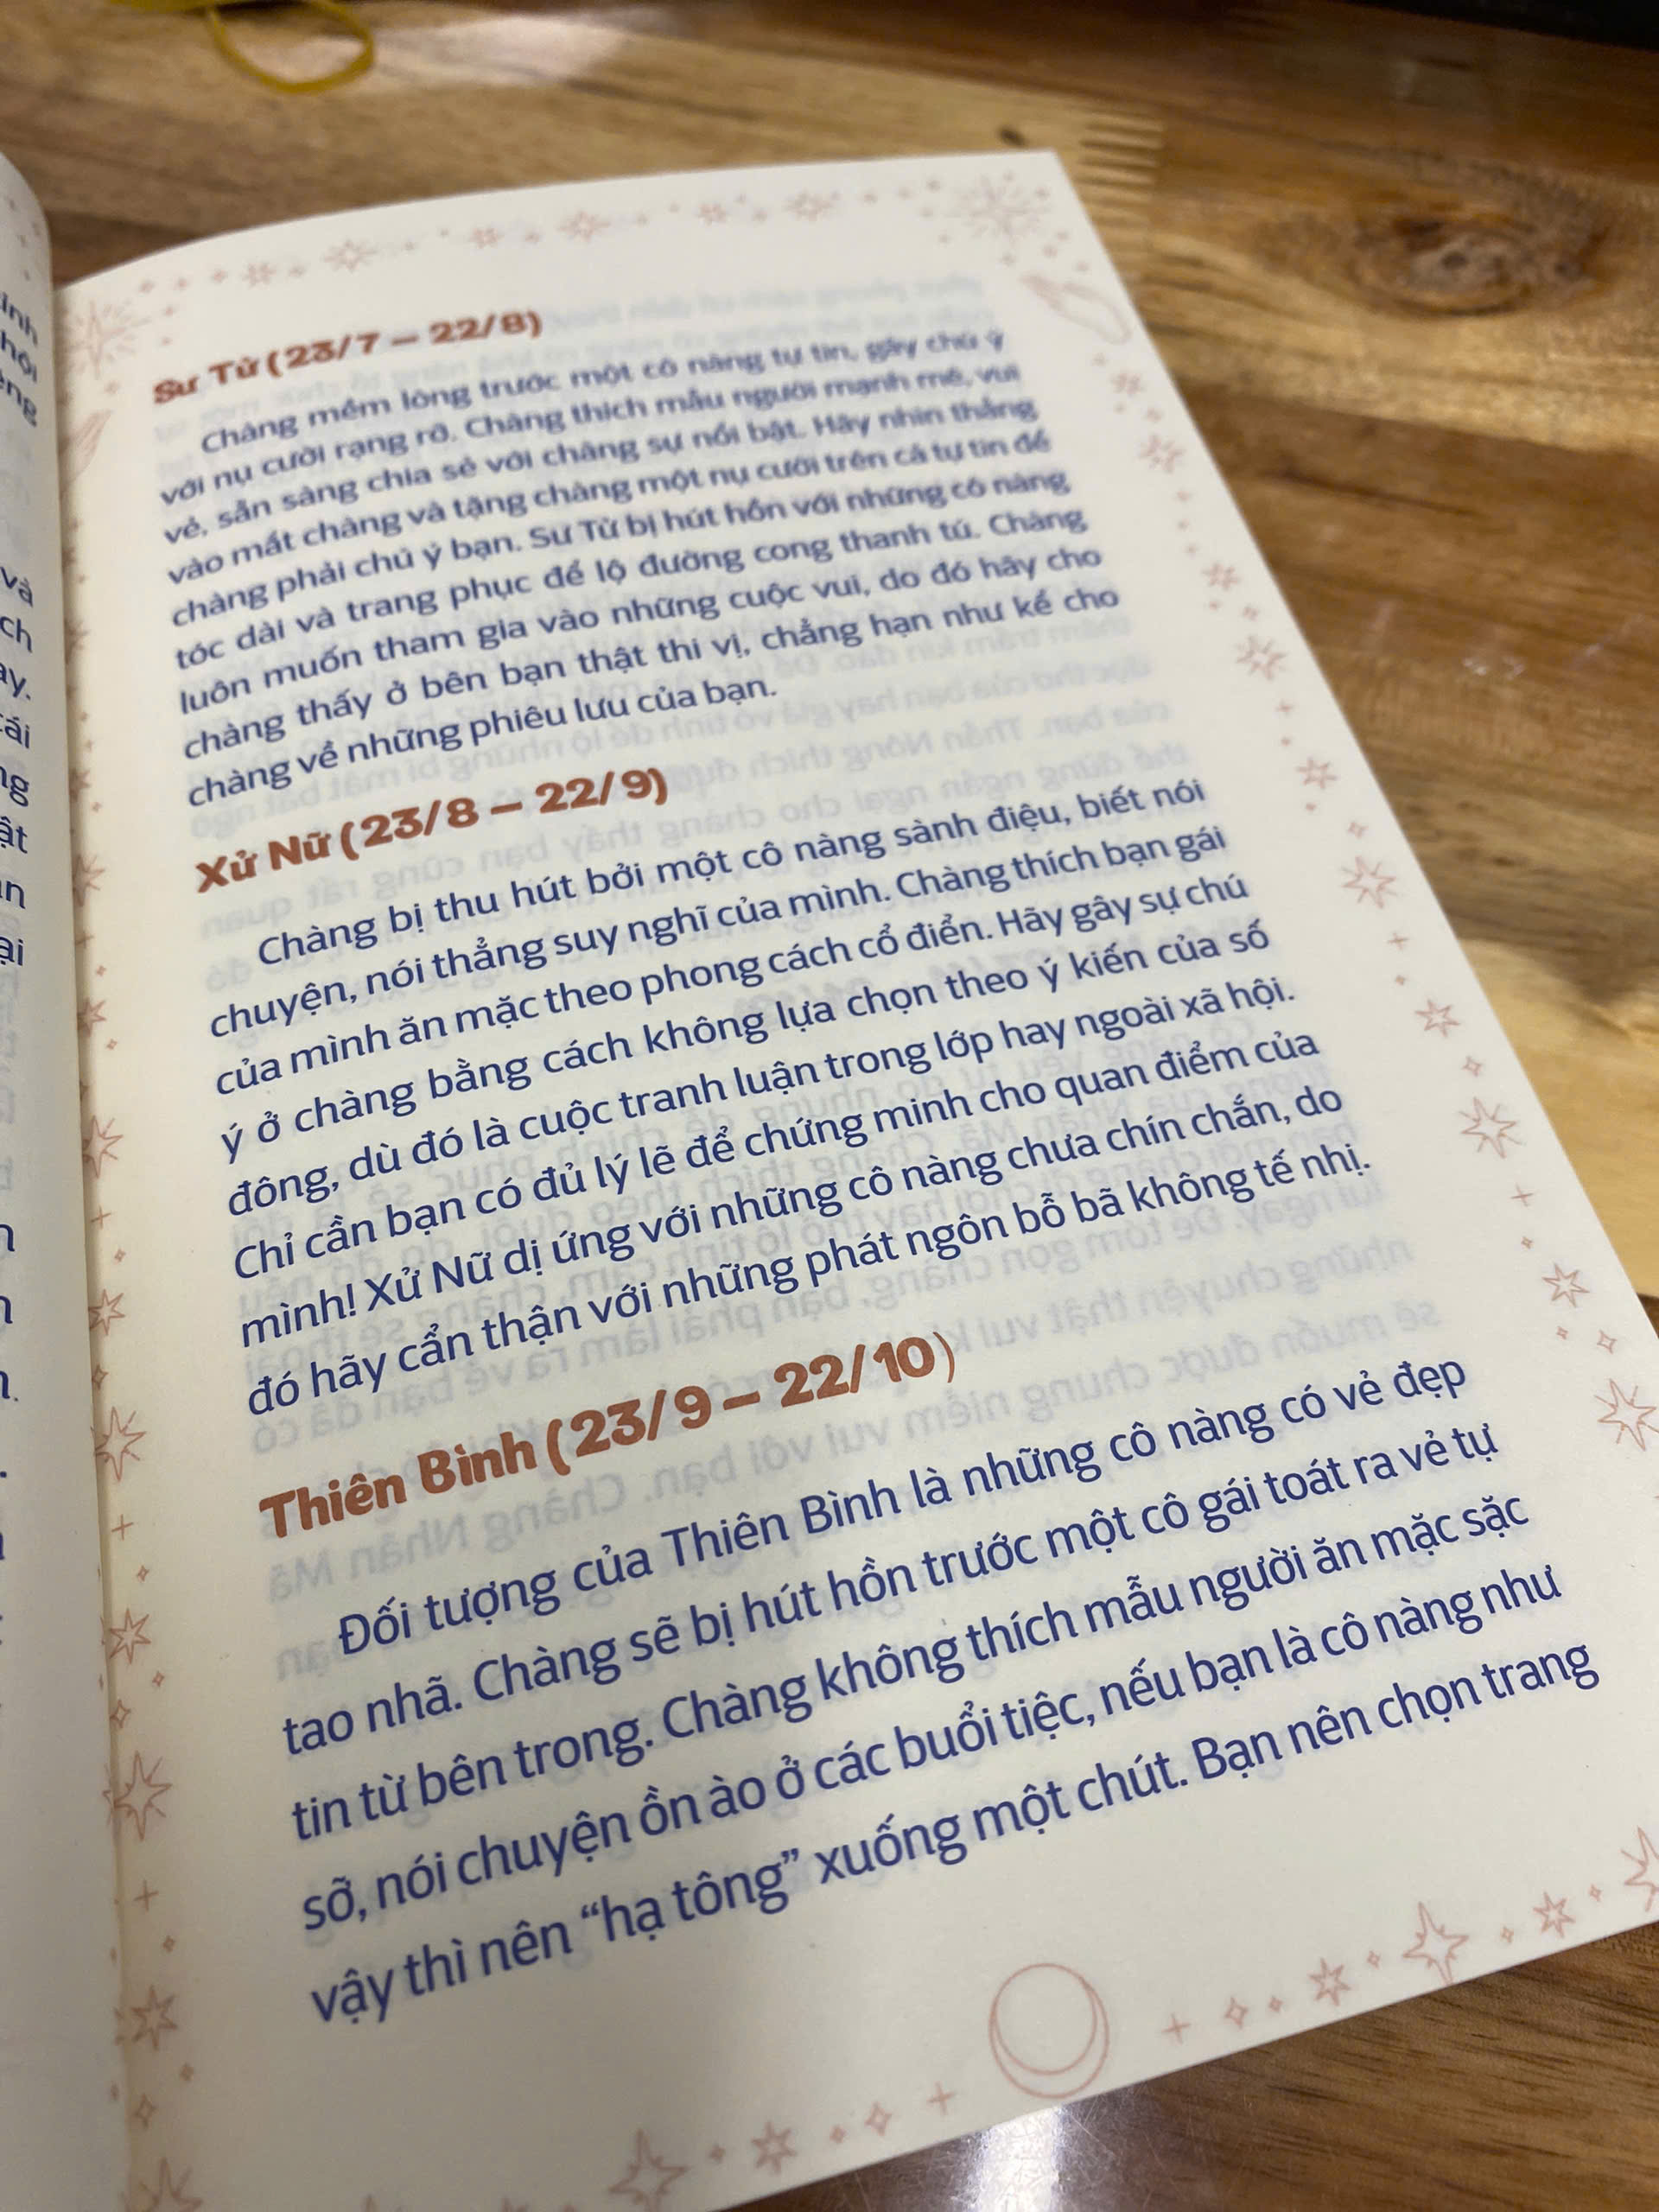 Sư Tử (23/7 – 22/8)
Chàng mềm lòng trước một cô nàng tự tin, gây chú ý
với nụ cười rạng rỡ. Chàng thích mẫu người mạnh mẽ, vui
vẻ, sẵn sàng chia sẻ với chàng sự nổi bật. Hãy nhìn thẳng
vào mắt chàng và tặng chàng một nụ cười trên cả tự tin để
chàng phải chú ý bạn. Sư Tử bị hút hồn với những cô nàng
tóc dài và trang phục để lộ đường cong thanh tú. Chàng
luôn muốn tham gia vào những cuộc vui, do đó hãy cho
chàng thấy ở bên bạn thật thi vị, chẳng hạn như kể cho
chàng về những phiêu lưu của bạn.
Xử Nữ (23/8 – 22/9)
Chàng bị thu hút bởi một cô nàng sành điệu, biết nói
chuyện, nói thẳng suy nghĩ của mình. Chàng thích bạn gái
của mình ăn mặc theo phong cách cổ điển. Hãy gây sự chú
ý ở chàng bằng cách không lựa chọn theo ý kiến của số
đông, dù đó là cuộc tranh luận trong lớp hay ngoài xã hội.
Chỉ cần bạn có đủ lý lẽ để chứng minh cho quan điểm của
mình! Xử Nữ dị ứng với những cô nàng chưa chín chắn, do
đó hãy cẩn thận với những phát ngôn bỗ bã không tế nhị.
Thiên Bình (23/9 – 22/10)
Đối tượng của Thiên Bình là những cô nàng có vẻ đẹp
tao nhã. Chàng sẽ bị hút hồn trước một cô gái toát ra vẻ tự
tin từ bên trong. Chàng không thích mẫu người ăn mặc sặc
sỡ, nói chuyện ồn ào ở các buổi tiệc, nếu bạn là cô nàng như
vậy thì nên “hạ tông” xuống một chút. Bạn nên chọn trang